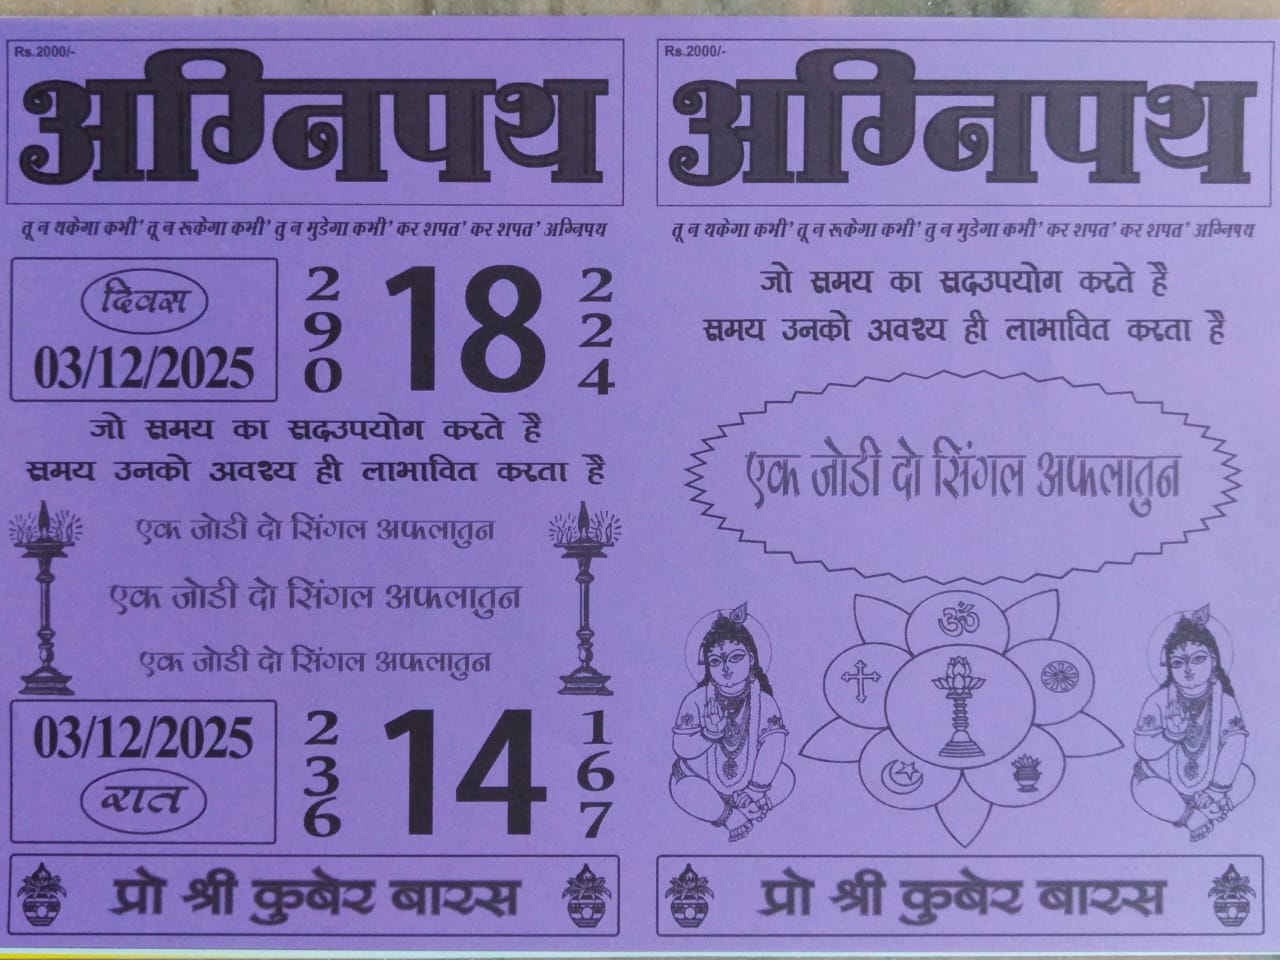 Rs.2000/-
अग्निपथ
तू न थकेगा कभी' तू न रूकेगा कभी' तु न मुडेगा कभी' कर शपत' कर शपत' अग्निपथ
दिवस
03/12/2025
290
18
224
जो समय का सदउपयोग करते है
समय उनको अवश्य ही लाभावित करता है
एक जोडी दो सिंगल अफलातुन
एक जोडी दो सिंगल अफलातुन
एक जोडी दो सिंगल अफलातुन
03/12/2025
रात
236
14
167
प्रो श्री कुबेर बारस
Rs.2000/-
अग्निपथ
तू न थकेगा कभी' तू न रूकेगा कभी' तु न मुडेगा कभी' कर शपत' कर शपत' अग्निपथ
जो समय का सदउपयोग करते है
समय उनको अवश्य ही लाभावित करता है
एक जोडी दो सिंगल अफलातुन
ॐ
प्रो श्री कुबेर बारस